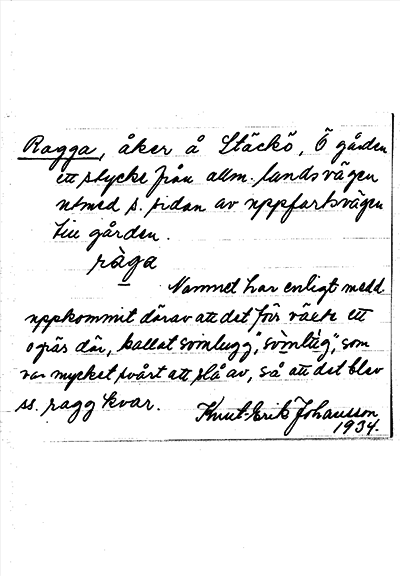 Ragga, åker å Stäckö, Ö gården
ett stycke från allm. landsvägen
utmed s. sidan av uppfartsvägen
till gården.
ràga
Namnet har enligt medd.
uppkommit därav att det förr växte ett
ogräs där, kallat svinlugg, "svìnlùg", som
var mycket svårt att slå av, så att det blev
ss. ragg kvar.
Knut-Erik Johansson
1934.